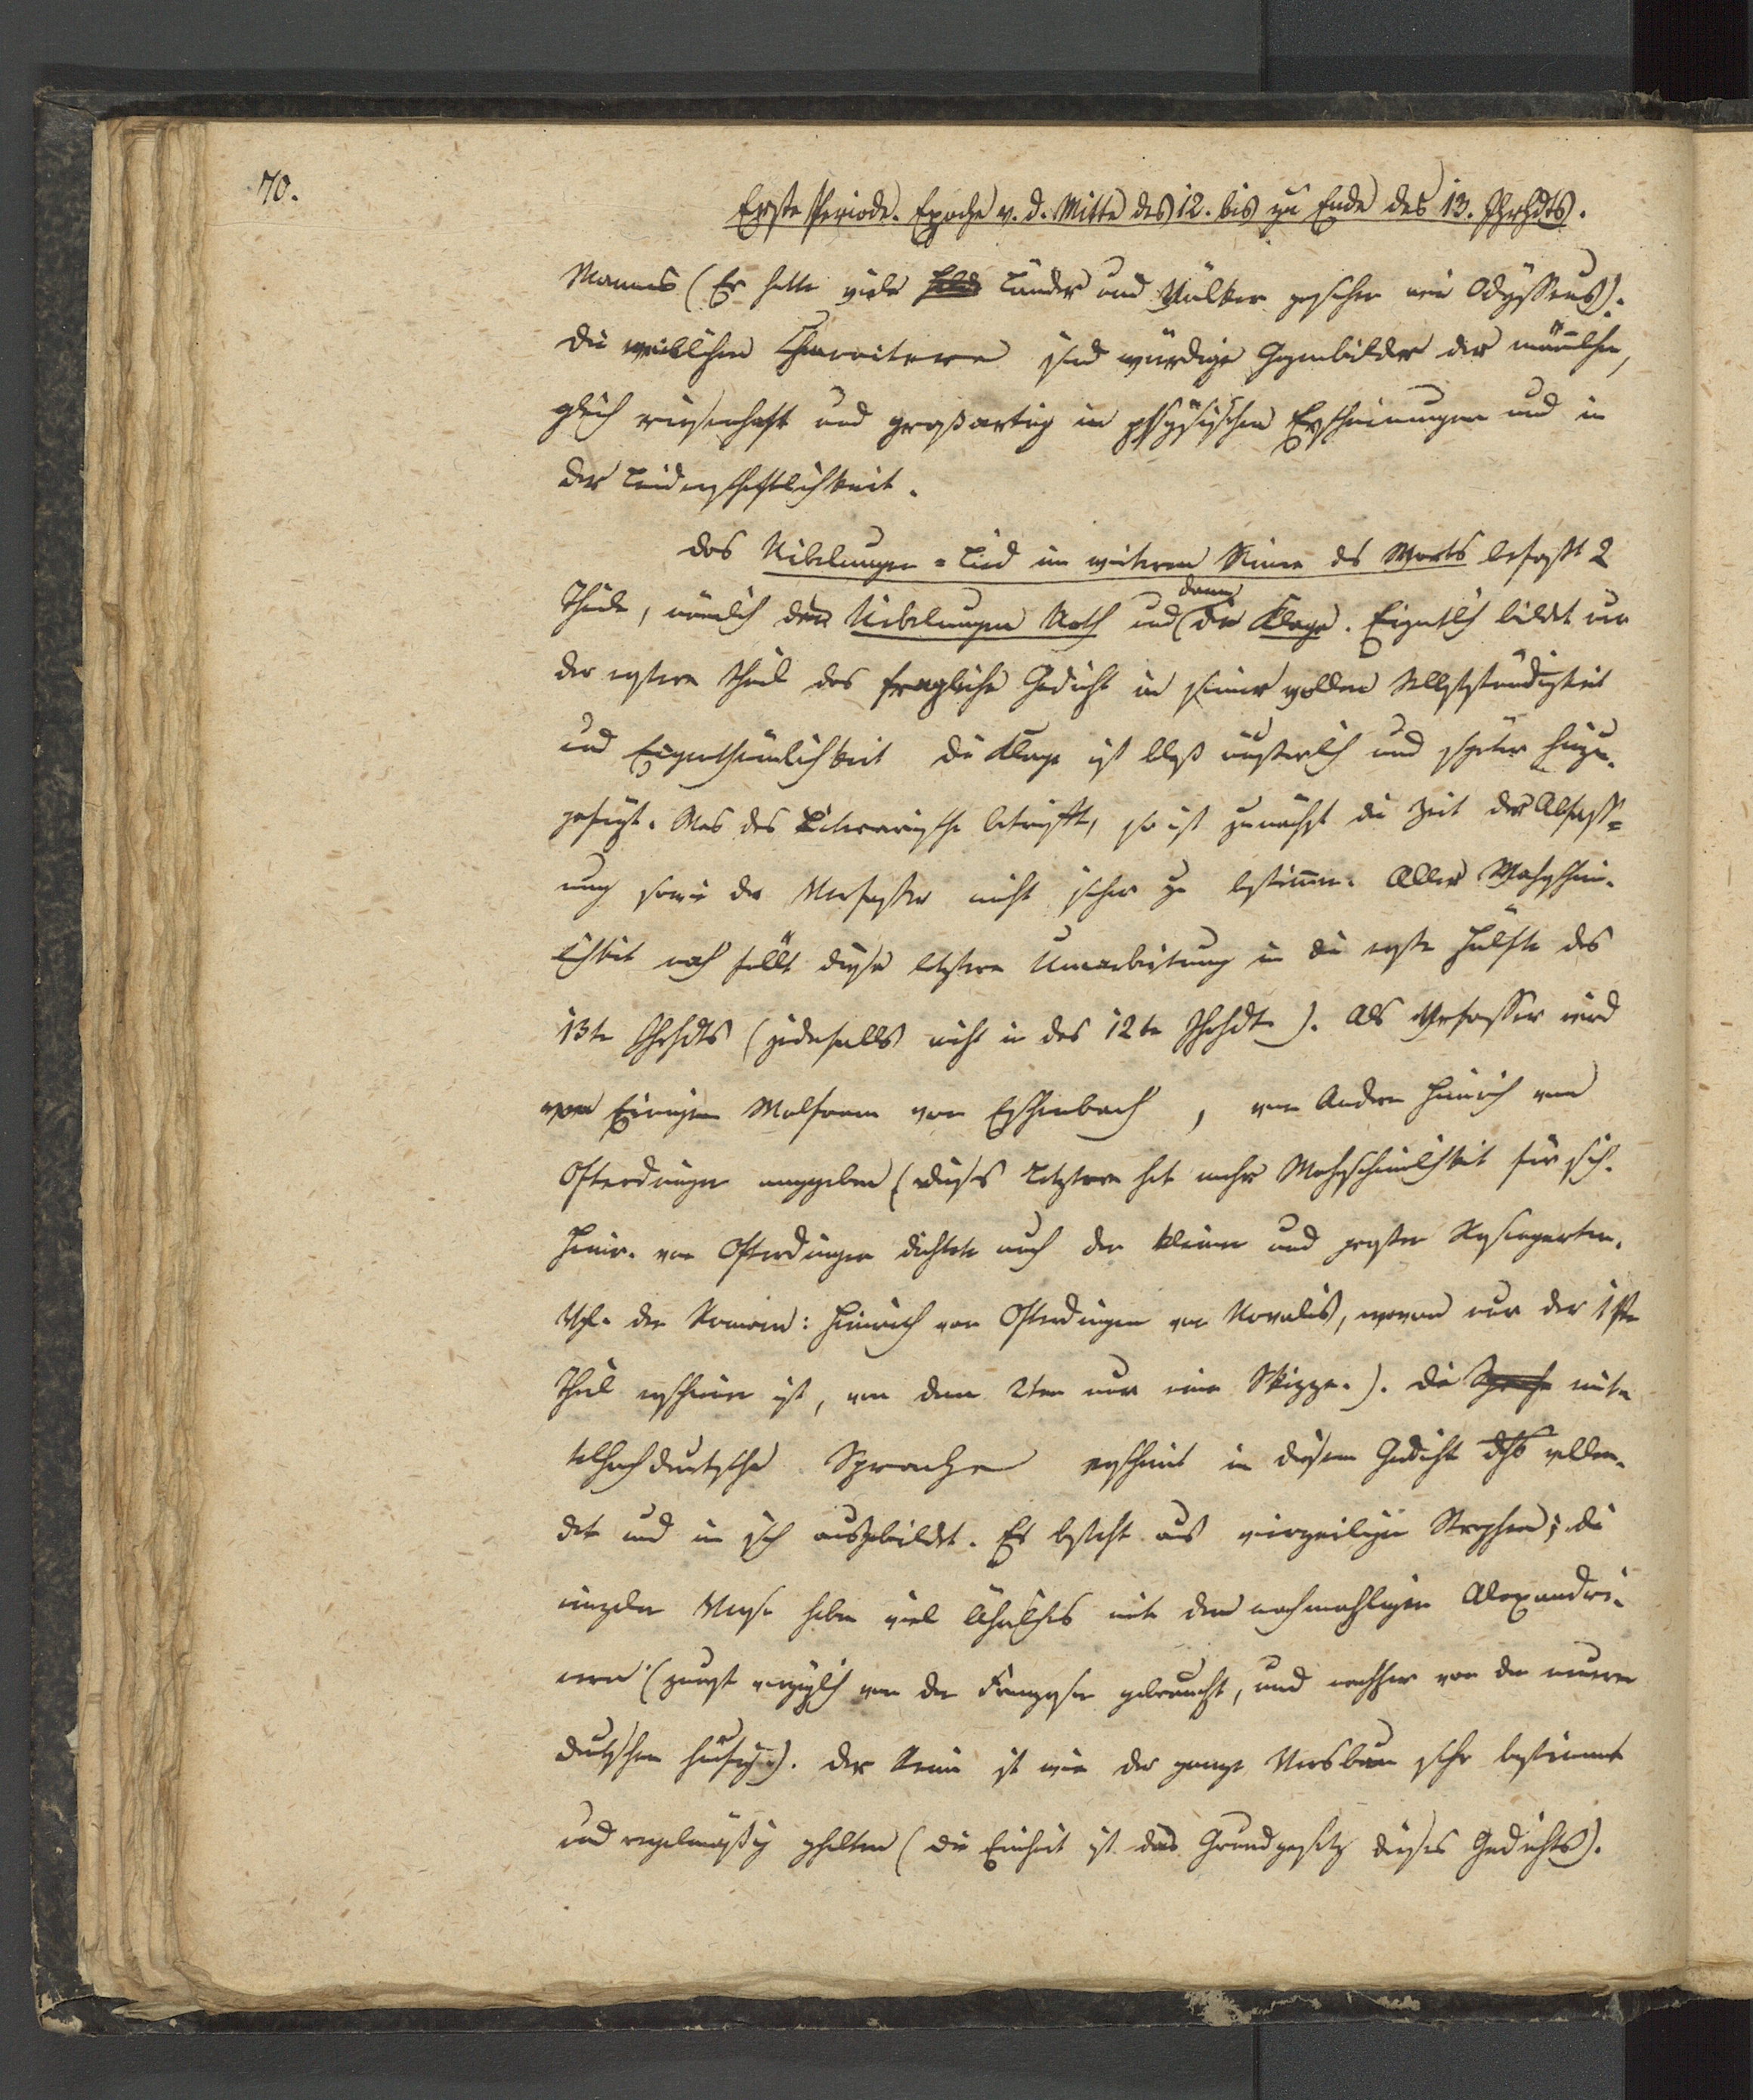 70.
Erste Periode. Epoche v. d. Mitte des 12. bis zu Ende des 13. Jhrhdts.
Mannes (Er hatte viele Länder und Völker gesehen wie Odÿsseus).
Die weiblichen Charaktere sind würdige Gegenbilder der männlchen,
gleich riesenhaft und großartig in phÿsischen Erscheinungen und in
der Leidenschaftlichkeit.
Das Nibelungen=Lied im weiteren Sinne des Worts befaßt 2
Theile, nämlich der Nibelungen Noth und dann die Klage. Eigentlch bildet nur
der erstere Theil das fragliche Gedicht in seiner vollen Selbstständigkeit
und Eigenthümlichkeit die Klage ist bloß äußerlch und später hinzu-
gefügt. Was das Literarische betrifft, so ist zunächst die Zeit der Abfass=
ung sowie der Verfasser nicht sicher zu bestimmen. Aller Wahrschein-
lichkeit nach fällt diese letztere Umarbeitung in die erste Hälfte des
13te Jhrhdts (jedenfalls nicht in das 12te Jhrhdt). Als Verfasser wird
von Einigen Wolfram von Eschenbach, von Andern Heinrich von
Ofterdingen angegeben (dieses Letztere hat mehr Wahrscheinlchkeit für sich.
Heinr. von Ofterdingen dichtete auch den kleinen und großen Rosengarten.
Vgl. den Roman: Heinrich von Ofterdingen von Novalis, wovon nur der 1ste
Theil erschienen ist, von dem 2ten nur eine Skizze.). Die Sprache mit=
telhochdeutsche Sprache erscheint in diesem Gedicht vollen-
det und in sich ausgebildet. Es besteht aus vierzeiligen Strophen; die
einzelnen Verse haben viel Ähnlches mit den nachmahligen Alexandri-
nern (zuerst vorzüglch von den Franzosen gebraucht, und nachher von den neueren
Deutschen häufig). Der Reim ist wie der ganze Versbau sehr bestimmt
und regelmäßig gehalten (die Einheit ist das Grundgesetz dieses Gedichts).